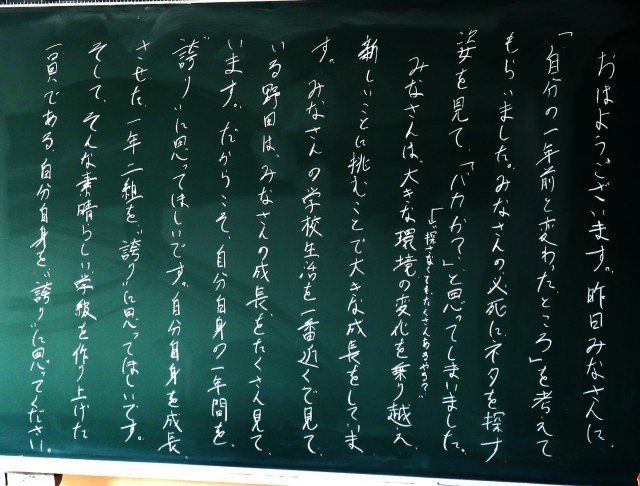 おはようございます。昨日みなさんに、
「自分の一年前と変わったところ」を考えて
もらいました。みなさんの必死にネタを探す
姿を見て、「バカか？」と思ってしまいました。
「“探さなくてもたくさんあるやろ？”
みなさんは、大きな環境の変化を乗り越え、
新しいことに挑むことで大きな成長をしていま
す。みなさんの学校生活を一番近くで見て
いる野田は、みなさんの成長をたくさん見て
います。だからこそ、自分自身の一年間を
“誇り”に思ってほしいです。自分自身を成長
させた一年二組を“誇り”に思ってほしいです。
そして、そんな素晴らしい学級を作り上げた
一員である自分自身を“誇り”に思ってください。